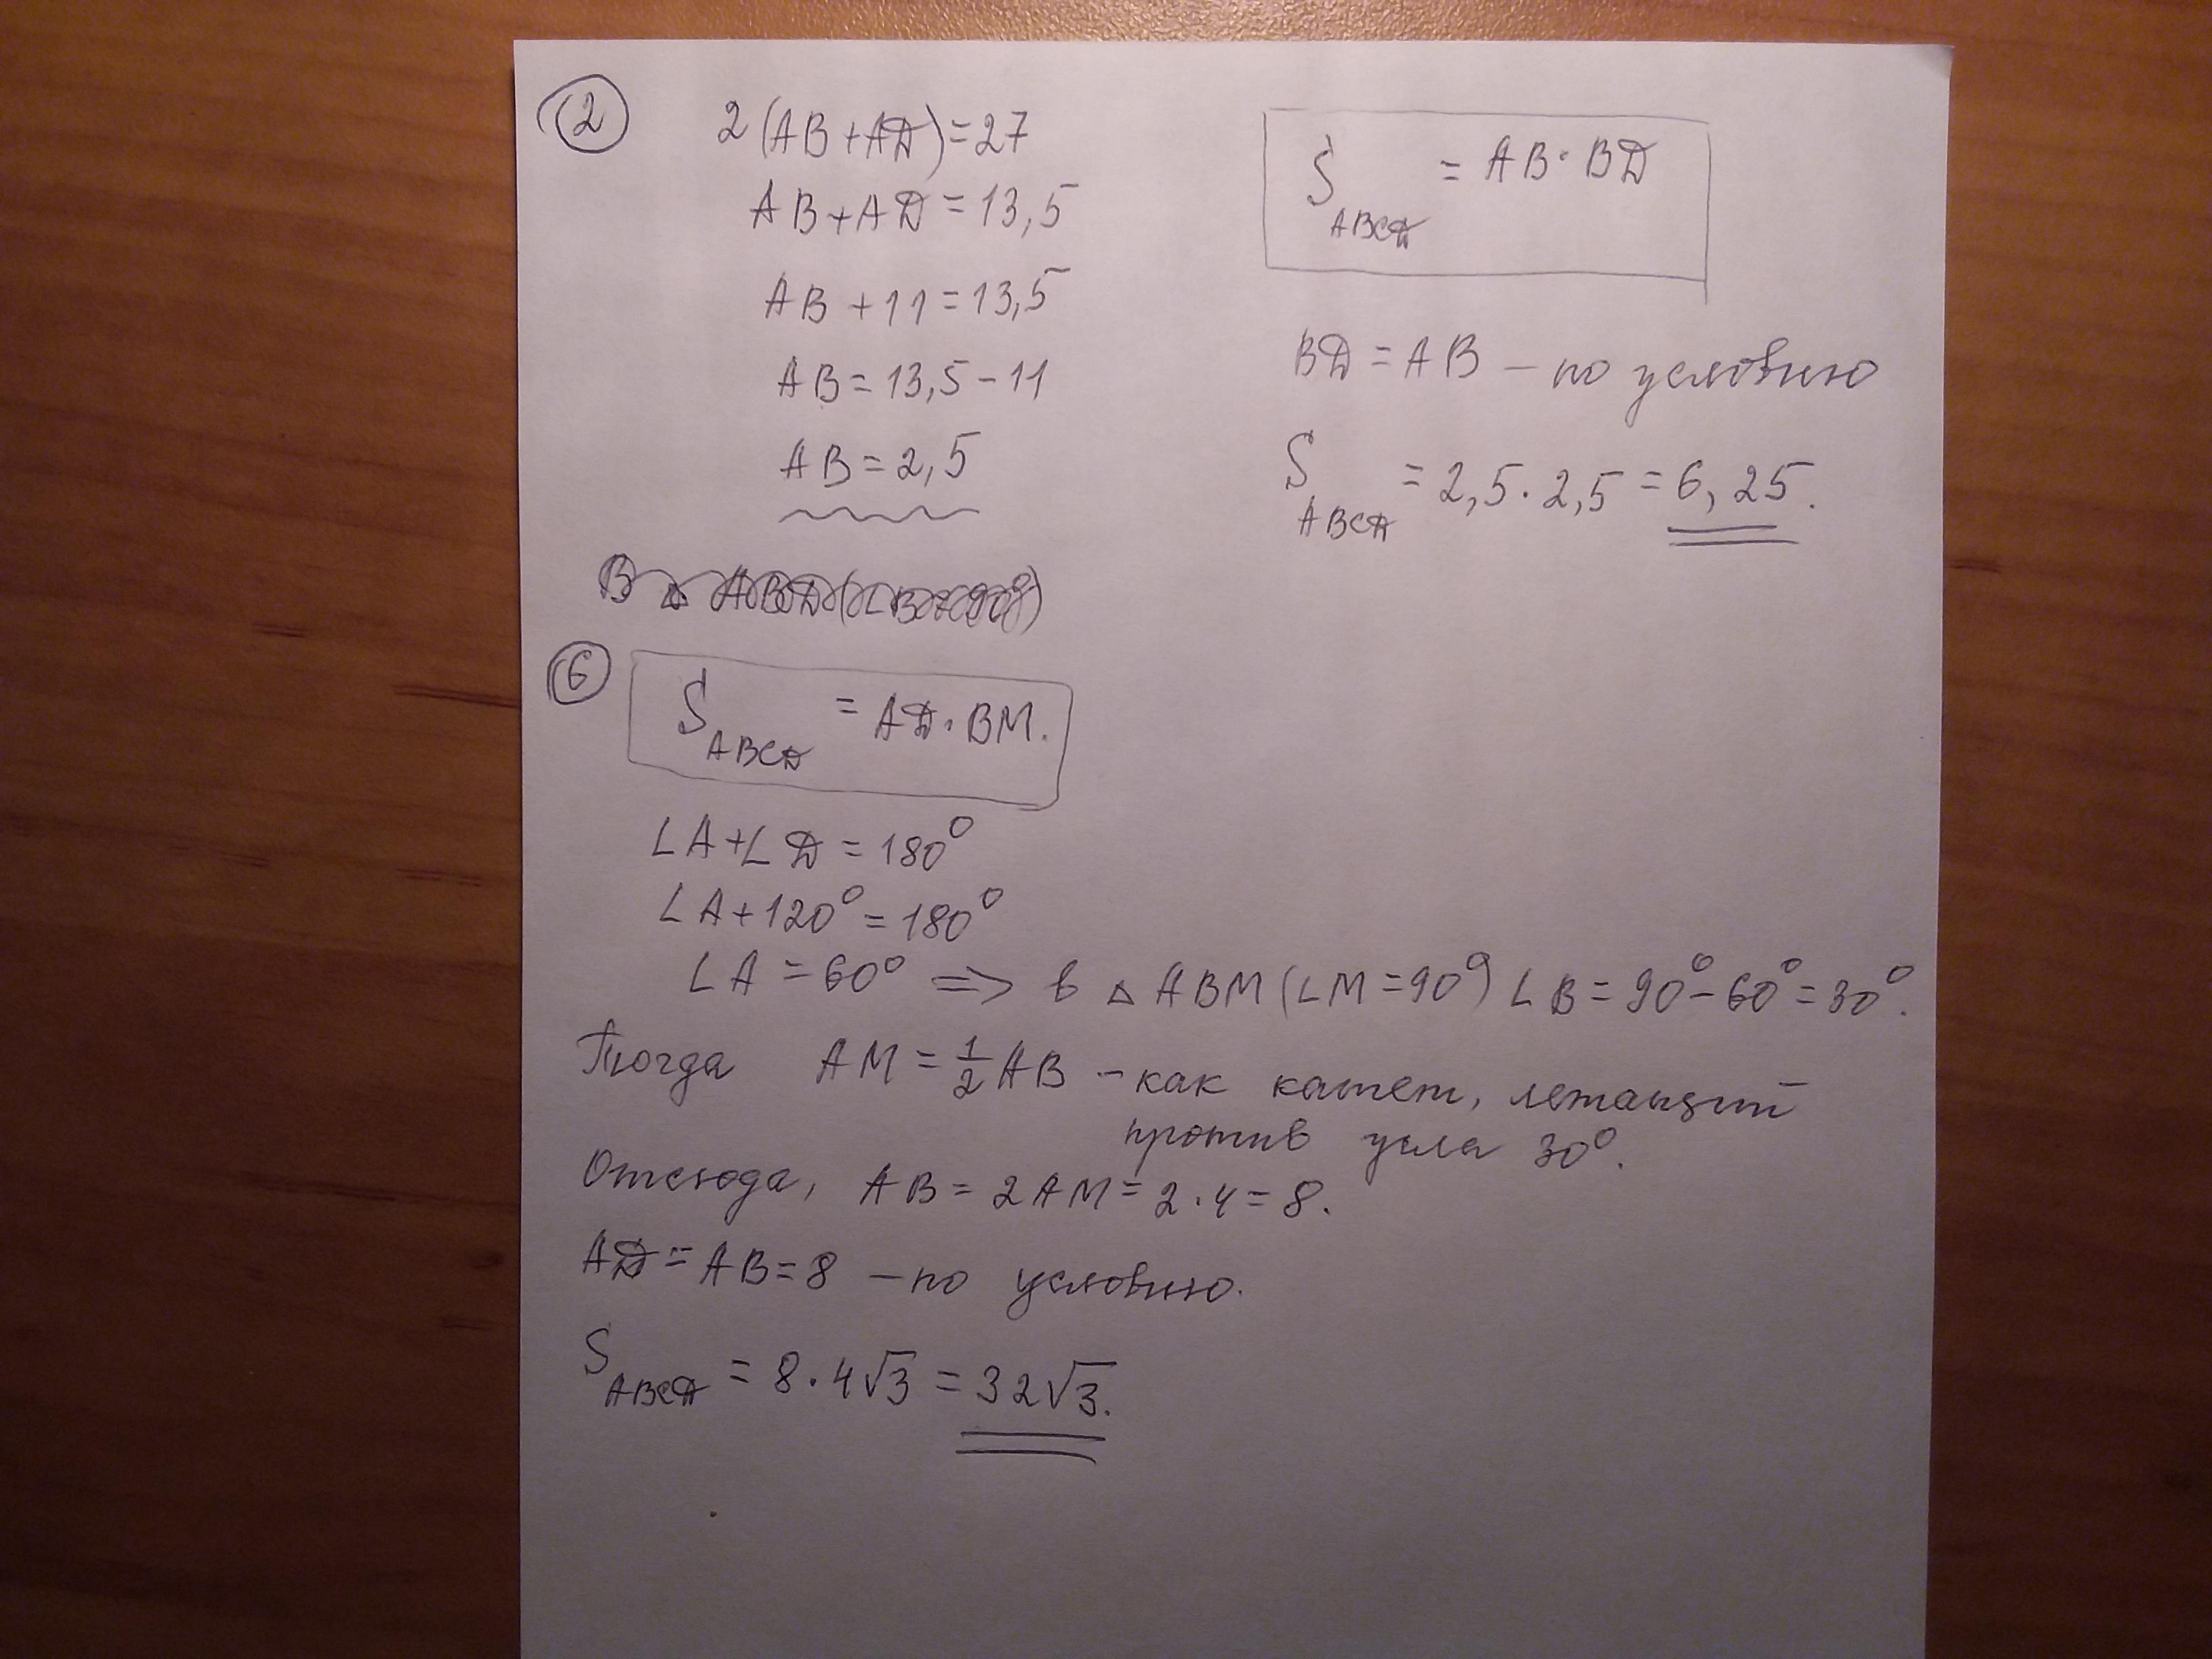 2
2(AB+AD)=27
AB+AD=13,5
AB+11=13,5
AB=13,5-11
AB=2,5
S ABCD = AB·BD
BD=AB – по условию
S ABCD = 2,5·2,5=6,25.
В △ ABD(∠B=90°)
6
S ABCD = AD·BM.
∠A+∠D=180°
∠A+120°=180°
∠A=60° ⇒ в △ABM(∠M=90°) ∠B=90°-60°=30°.
Тогда AM=1/2AB – как катет, лежащий
против угла 30°.
Отсюда, AB=2AM=2·4=8.
AD=AB=8 – по условию.
S ABCD = 8·4√3=32√3.